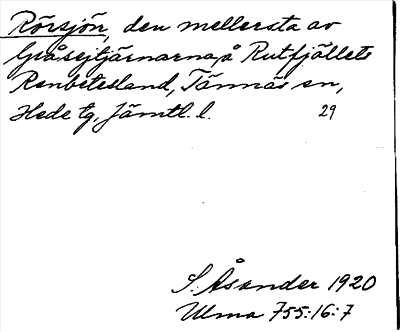 Rörsjön, den mellersta av
Gråsejtjärnarna, å Rutfjällets
Renbetesland, Tännäs sn,
Hede tg, Jämtl. l. 29
S. Åsander 1920
Ulma 755:16:7